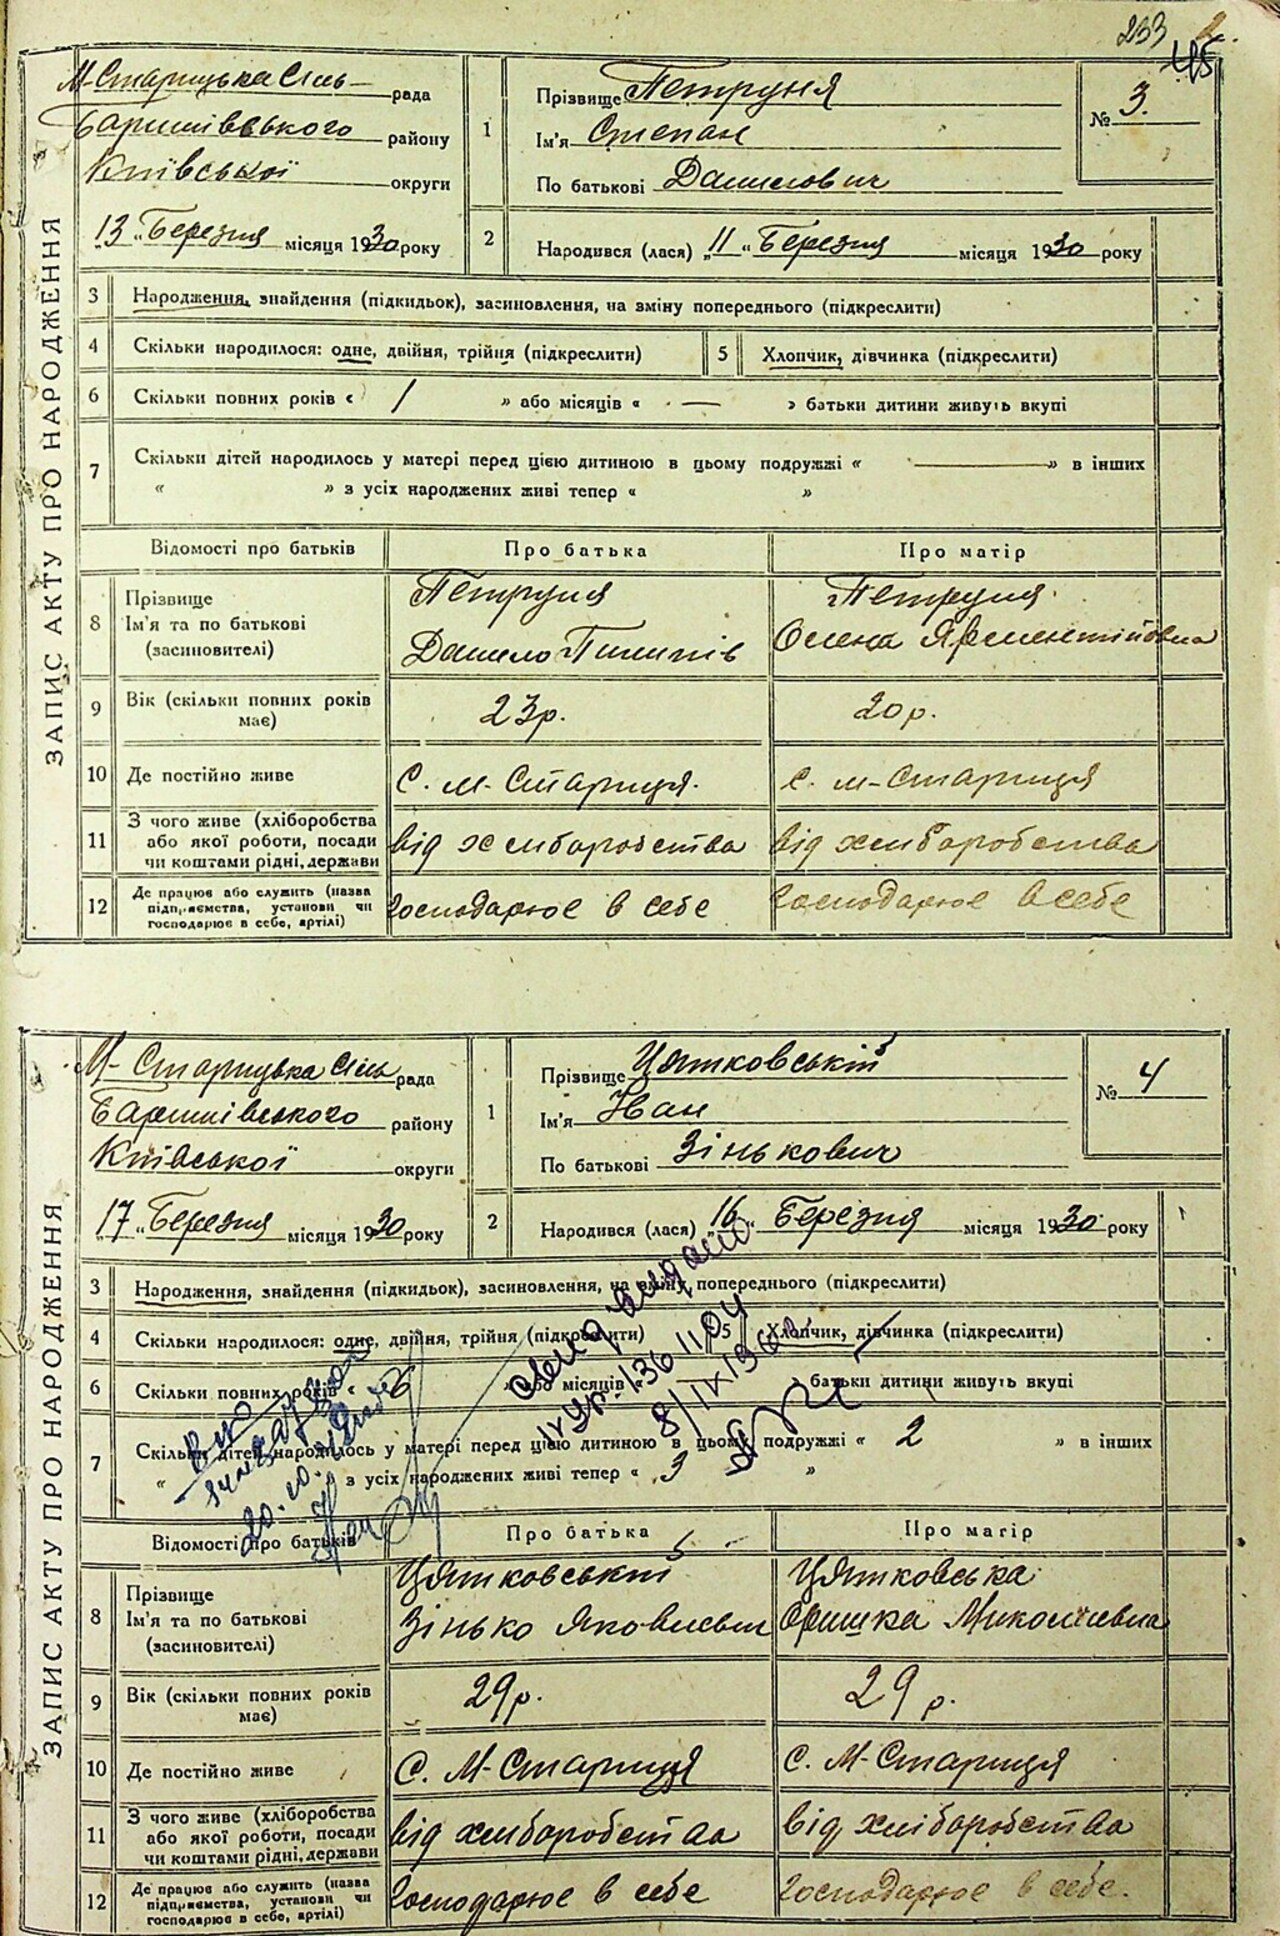 233 2.
ЗАПИС АКТУ ПРО НАРОДЖЕННЯ
М-Старицька Сіль- рада
Баришівського району
Київської округи
"13" Березня місяця 1930 року
1 Прізвище Петруня
Ім'я Степан
По батькові Данилович
№ 3.
2 Народився (лася) "11" Березня місяця 1930 року
3 Народження, знайдення (підкидьок), засиновлення, на зміну попереднього (підкреслити)
4 Скільки народилося: одне, двійня, трійня (підкреслити) 5 Хлопчик, дівчинка (підкреслити)
6 Скільки повних років « 1 » або місяців « — » батьки дитини живуть вкупі
7 Скільки дітей народилось у матері перед цією дитиною в цьому подружжі « — » в інших
« » з усіх народжених живі тепер « »
Відомості про батьків Про батька Про матір
8 Прізвище Петруня Петруня
Ім'я та по батькові (засиновителі) Данило Пилипів Олена Ярментіївна
9 Вік (скільки повних років має) 23р. 20р.
10 Де постійно живе С. М-Стариця. С. М-Стариця
11 З чого живе (хліборобства
або якої роботи, посади
чи коштами рідні, держави від хліборобства від хліборобства
12 Де працює або служить (назва
підприємства, установи чи
господарює в себе, артілі) Господарює в себе Господарює в себе
ЗАПИС АКТУ ПРО НАРОДЖЕННЯ
М-Старицька Сіль рада
Баришівського району
Київської округи
"17" Березня місяця 1930 року
1 Прізвище Цятковській
Ім'я Іван
По батькові Зінькович
№ 4
2 Народився (лася) "16" Березня місяця 1930 року
3 Народження, знайдення (підкидьок), засиновлення, на зміну попереднього (підкреслити)
4 Скільки народилося: одне, двійня, трійня (підкреслити) 5 Хлопчик, дівчинка (підкреслити)
6 Скільки повних років « 6 » або місяців « » батьки дитини живуть вкупі
7 Скільки дітей народилось у матері перед цією дитиною в цьому подружжі « 2 » в інших
« » з усіх народжених живі тепер « 3 »
8/IX 196
20.10.
Відомості про батьків Про батька Про матір
8 Прізвище Цятковській Цятковська
Ім'я та по батькові (засиновителі) Зінько Яковлевич Оришка Миколаєвна
9 Вік (скільки повних років має) 29р. 29 р.
10 Де постійно живе С. М-Стариця С. М-Стариця
11 З чого живе (хліборобства
або якої роботи, посади
чи коштами рідні, держави від хліборобства від хліборобства
12 Де працює або служить (назва
підприємства, установи чи
господарює в себе, артілі) Господарює в себе Господарює в себе.